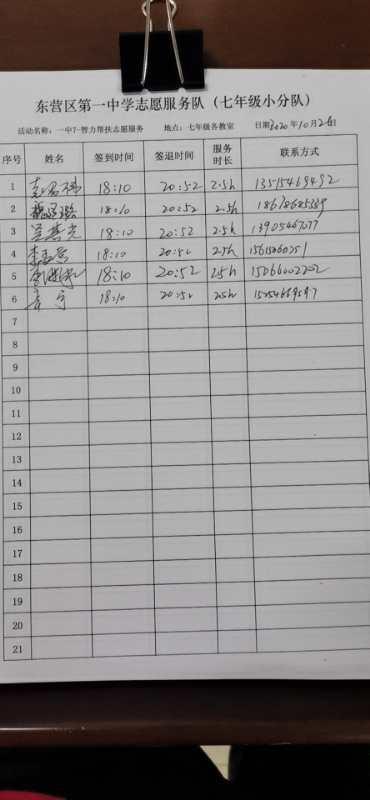 东营区第一中学志愿服务队（七年级小分队）
活动名称：一中7-智力帮扶志愿服务 地点：七年级各教室 日期2020年10月26日
序号 姓名 签到时间 签退时间 服务时长 联系方式
1 18:10 20:52 2.5h 13515469492
2 18:10 20:52 2.5h
3 18:10 20:52 2.5h
4 18:10 20:52 2.5h
5 18:10 20:52 2.5h 15066002202
6 18:10 20:52 2.5h
7
8
9
10
11
12
13
14
15
16
17
18
19
20
21